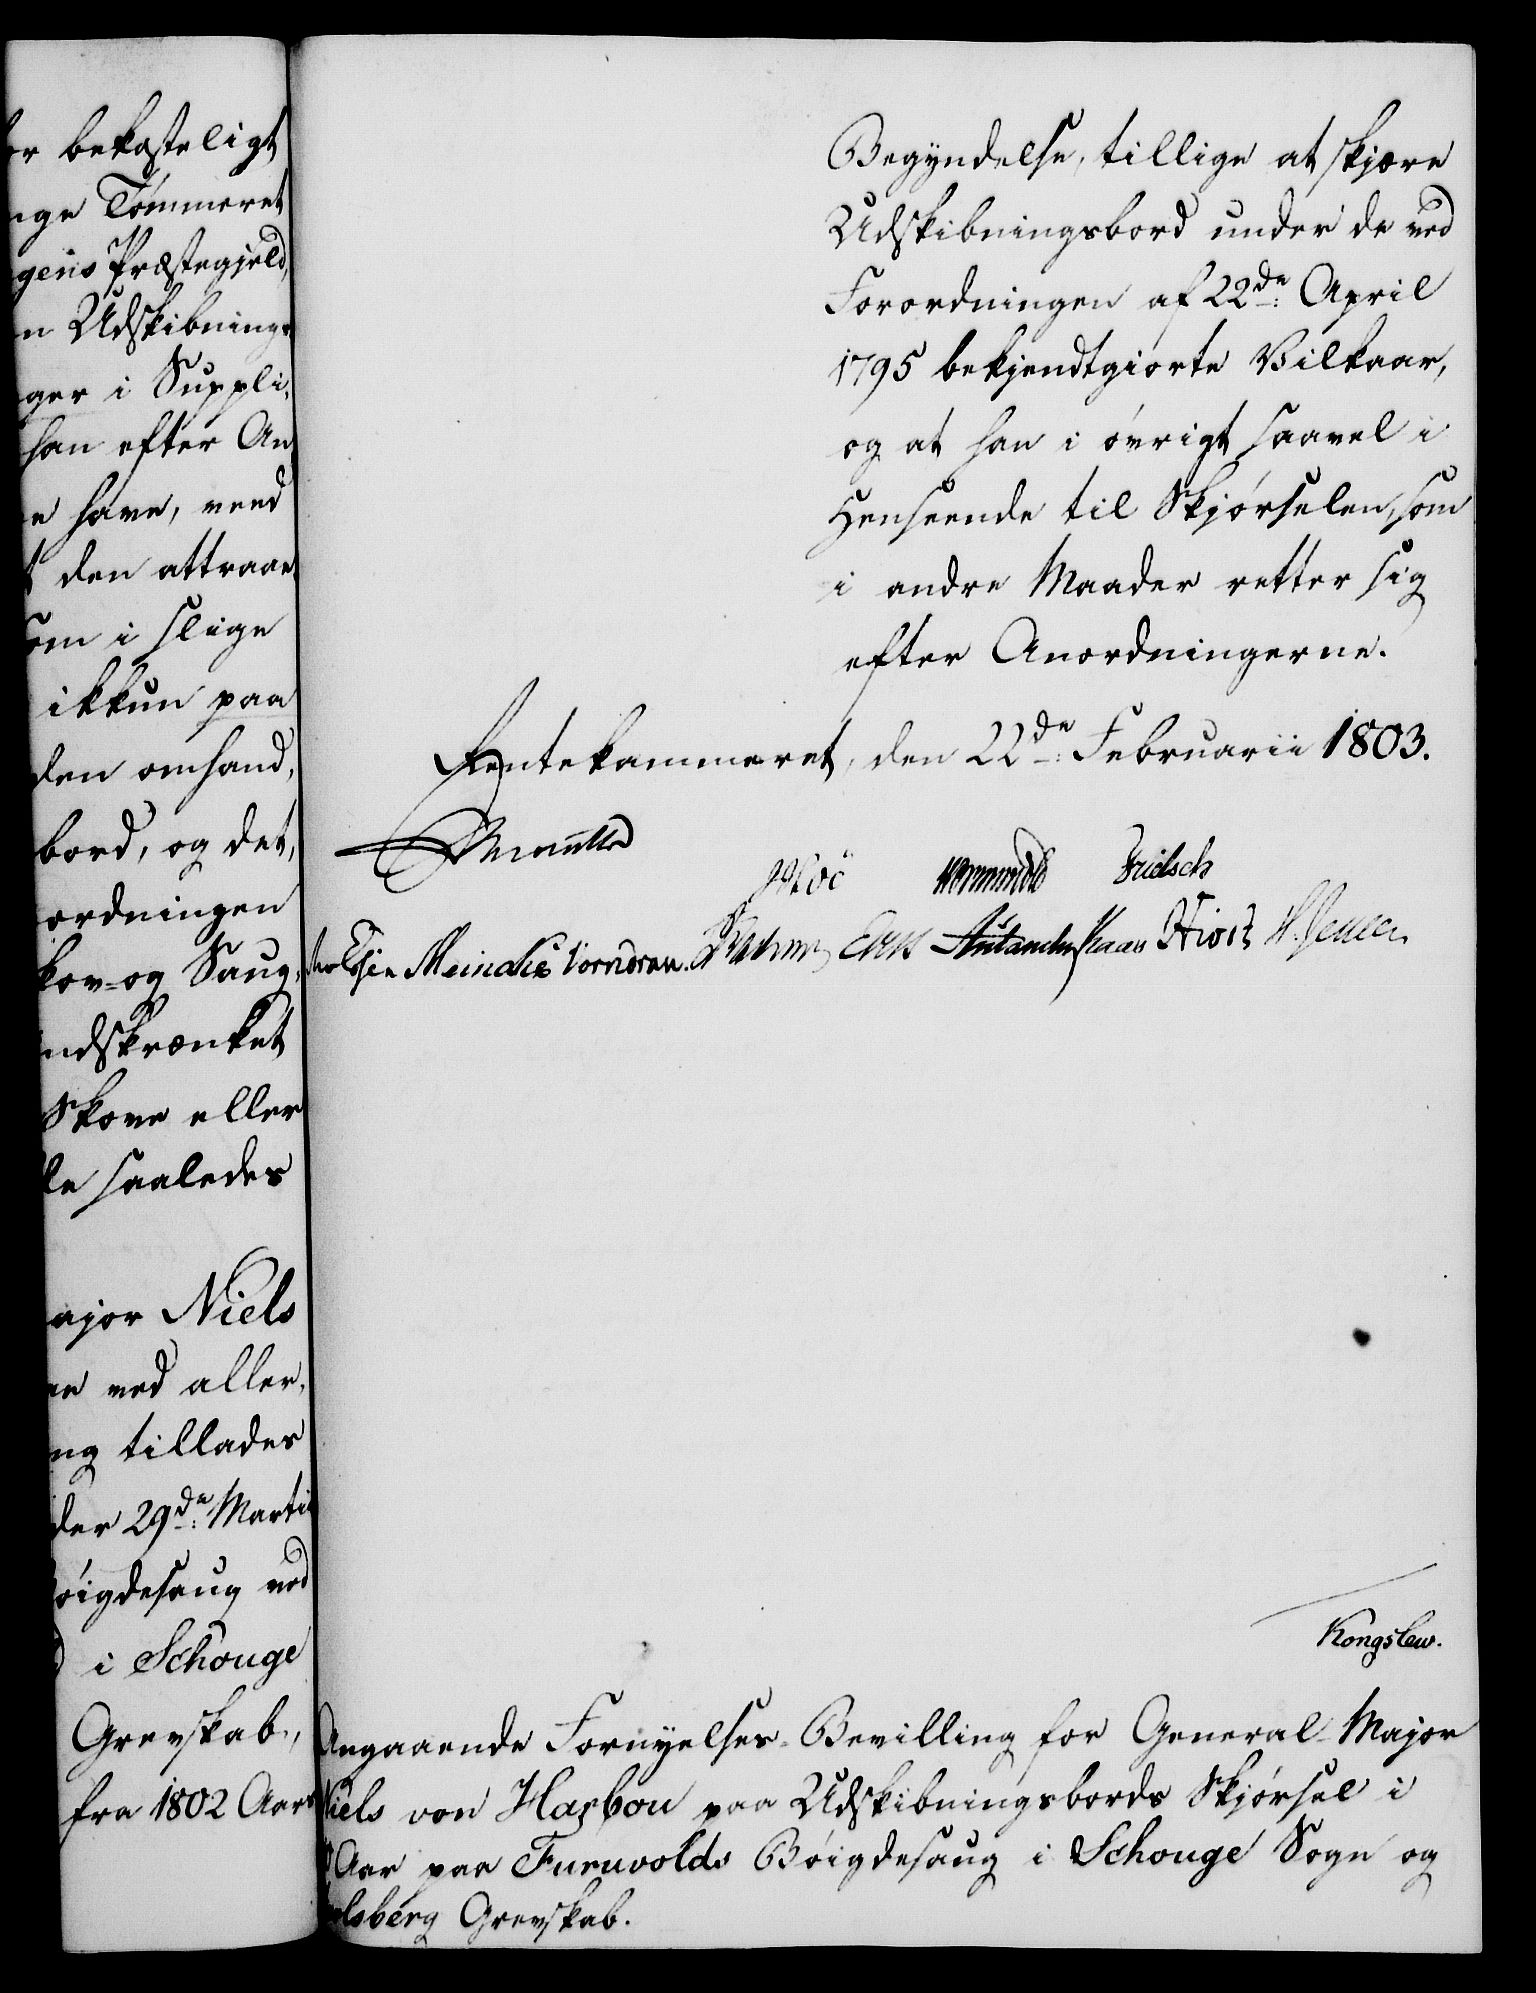 bekosteligt
Tømmeret
Præstegjeld,
Udskibnings
i Suppli,
han efter An
have, veed
den attraae
i slige
ikkun paa
den omhand,
bord, og det,
ordningen
og Saug,
ndskrænket
Skove eller
saaledes
ajor Niels
ved aller,
tillades
der 29de Martii
øigdesaug ved
i Schouge
Grevskab,
fra 1802 Aars
Begyndelse, tillige at skjære
Udskibningsbord under de ved
Forordningen af 22de: April
1795 bekjendtgiorte Vilkaar,
og at han i øvrigt saavel i
Henseende til Skjørselen, som
i andre Maader retter sig
efter Anordningerne.
Rentekammeret, den 22de: Februarii 1803.
Wormskiold
Meincke Vorndran. Kaas Hiort
Kongslew.
Angaaende Fornyelses-Bevilling for General-Major
Niels von Harbou paa Udskibningsbords Skjørsel i
Aar paa Furuvolds Bøigdesaug i Schouge Sogn og
lsberg Grevskab.